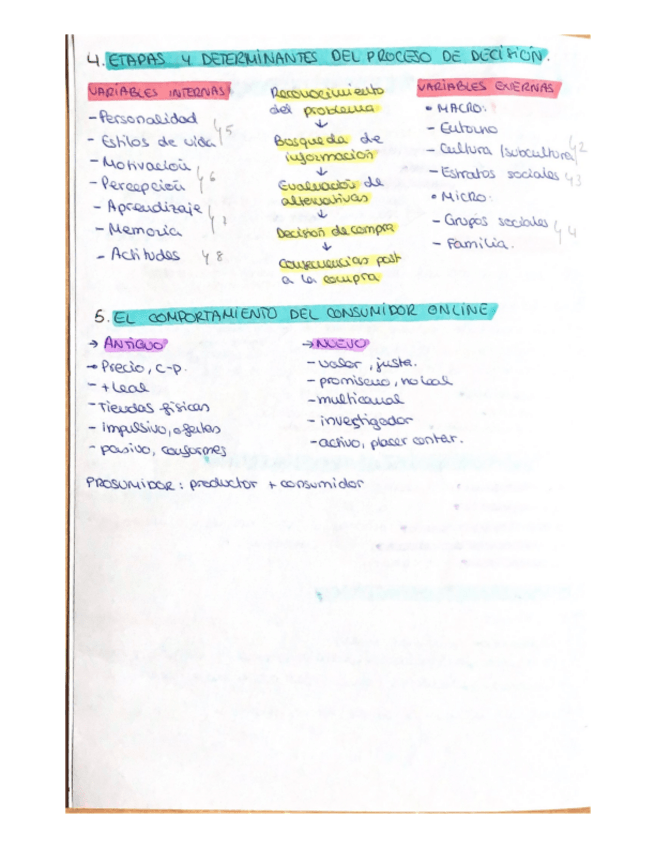 4. ETAPAS Y DETERMINANTES DEL PROCESO DE DECISIÓN.
VARIABLES INTERNAS
- Personalidad
- Estilos de vida
y5
- Motivación
- Percepción
y6
- Aprendizaje
- Memoria
y7
- Actitudes y8
Reconocimiento
del problema
↓
Búsqueda de
información
↓
Evaluación de
alternativas
↓
Decisión de compra
↓
Consecuencias post
a la compra
VARIABLES EXTERNAS
• MACRO:
- Entorno
- Cultura /subcultura y2
- Estratos sociales y3
• MICRO:
- Grupos sociales
- Familia.
y4
5. EL COMPORTAMIENTO DEL CONSUMIDOR ONLINE
→ ANTIGUO
- Precio, c-p.
- + Leal
- Tiendas físicas
- impulsivo, ofertas
- pasivo, conformes
→ NUEVO
- valor, justa.
- promiscuo, no leal
- multicanal
- investigador
- activo, placer contar.
PROSUMIDOR: productor + consumidor